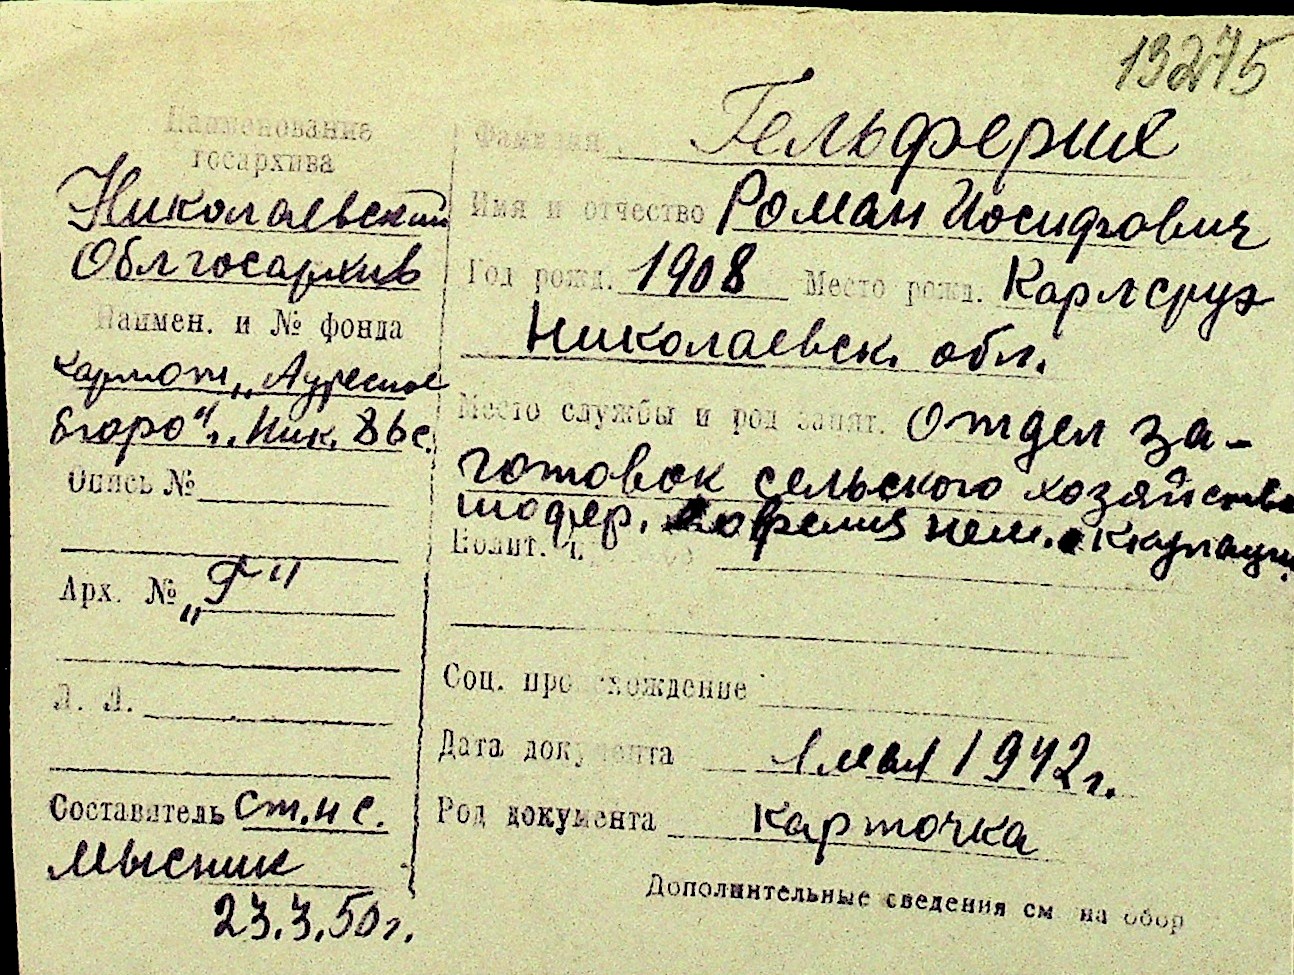 13275
Наименование
госархива
Николаевский
Облгосархив
Наимен. и № фонда
картот. „Адресное
бюро“ г. Ник. 86с.
Опись №
Арх. № „Г“
Л. Л.
Составитель ст. н с.
Мысник
23.3.50 г.
Фамилия Гельферих
Имя и отчество Роман Иосифович
Год рожд. 1908 Место рожд. Карлсруэ
Николаевск. обл.
Место службы и род занят. Отдел за-
готовок сельского хозяйства
шофер, во время нем. оккупации.
Полит.
Соц. происхождение
Дата документа 1 мая 1942 г.
Род документа Карточка
Дополнительные сведения см на обор